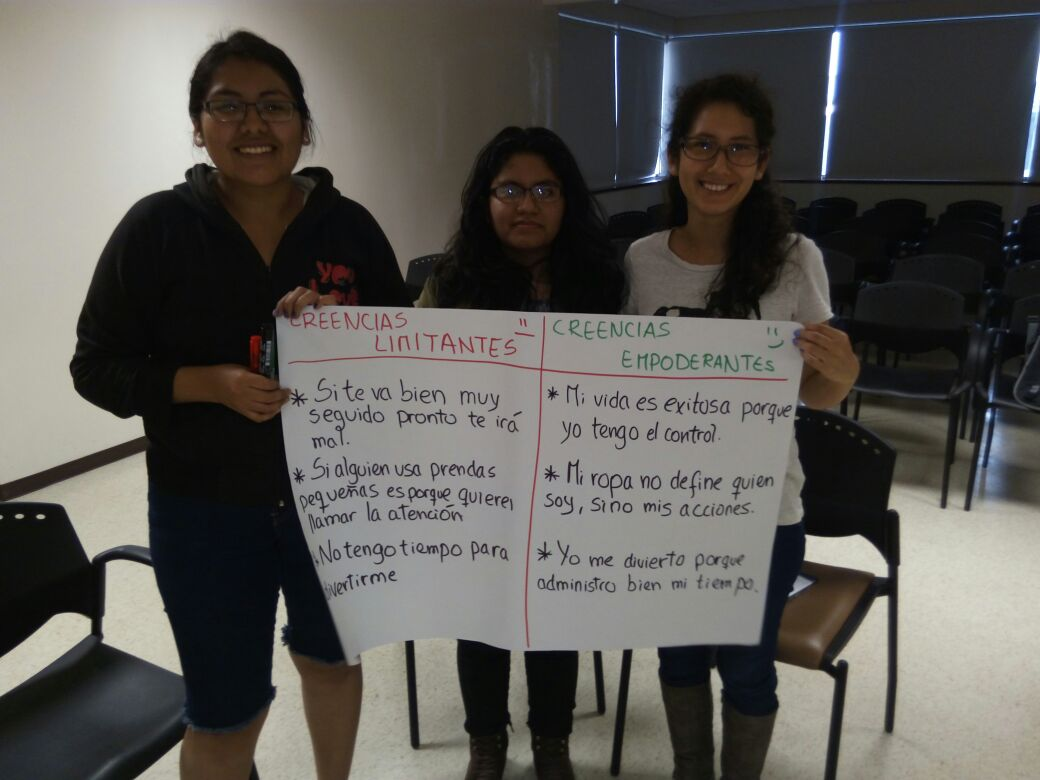 CREENCIAS
LIMITANTES
* Si te va bien muy
seguido pronto te irá
mal.
* Si alguien usa prendas
pequeñas es porque quieren
llamar la atención
* No tengo tiempo para
divertirme
CREENCIAS
EMPODERANTES
* Mi vida es exitosa porque
yo tengo el control.
* Mi ropa no define quien
soy, sino mis acciones.
* Yo me divierto porque
administro bien mi tiempo.